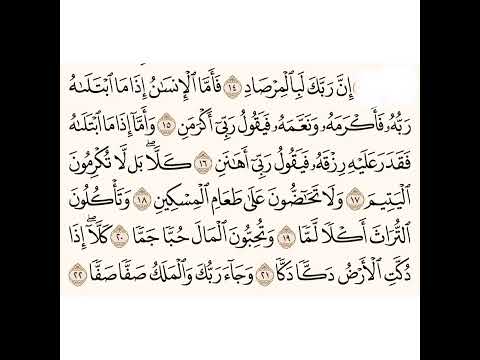 إِنَّ رَبَّكَ لَبِالْمِرْصَادِ ١٤ فَأَمَّا الْإِنسَٰنُ إِذَا مَا ابْتَلَىٰهُ
رَبُّهُۥ فَأَكْرَمَهُۥ وَنَعَّمَهُۥ فَيَقُولُ رَبِّىٓ أَكْرَمَنِ ١٥ وَأَمَّآ إِذَا مَا ابْتَلَىٰهُ
فَقَدَرَ عَلَيْهِ رِزْقَهُۥ فَيَقُولُ رَبِّىٓ أَهَٰنَنِ ١٦ كَلَّا ۖ بَل لَّا تُكْرِمُونَ
الْيَتِيمَ ١٧ وَلَا تَحَٰٓضُّونَ عَلَىٰ طَعَامِ الْمِسْكِينِ ١٨ وَتَأْكُلُونَ
التُّرَاثَ أَكْلًا لَّمًّا ١٩ وَتُحِبُّونَ الْمَالَ حُبًّا جَمًّا ٢٠ كَلَّآ ۖ إِذَا
دُكَّتِ الْأَرْضُ دَكًّا دَكًّا ٢١ وَجَآءَ رَبُّكَ وَالْمَلَكُ صَفًّا صَفًّا ٢٢